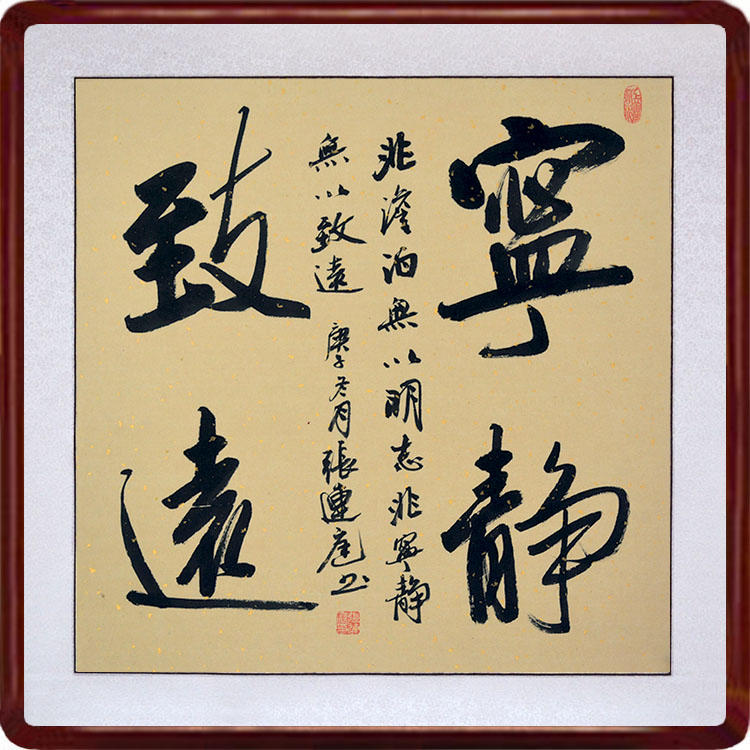 寧静
致遠
非澹泊無以明志非寧静
無以致遠
庚子冬月張連庭书